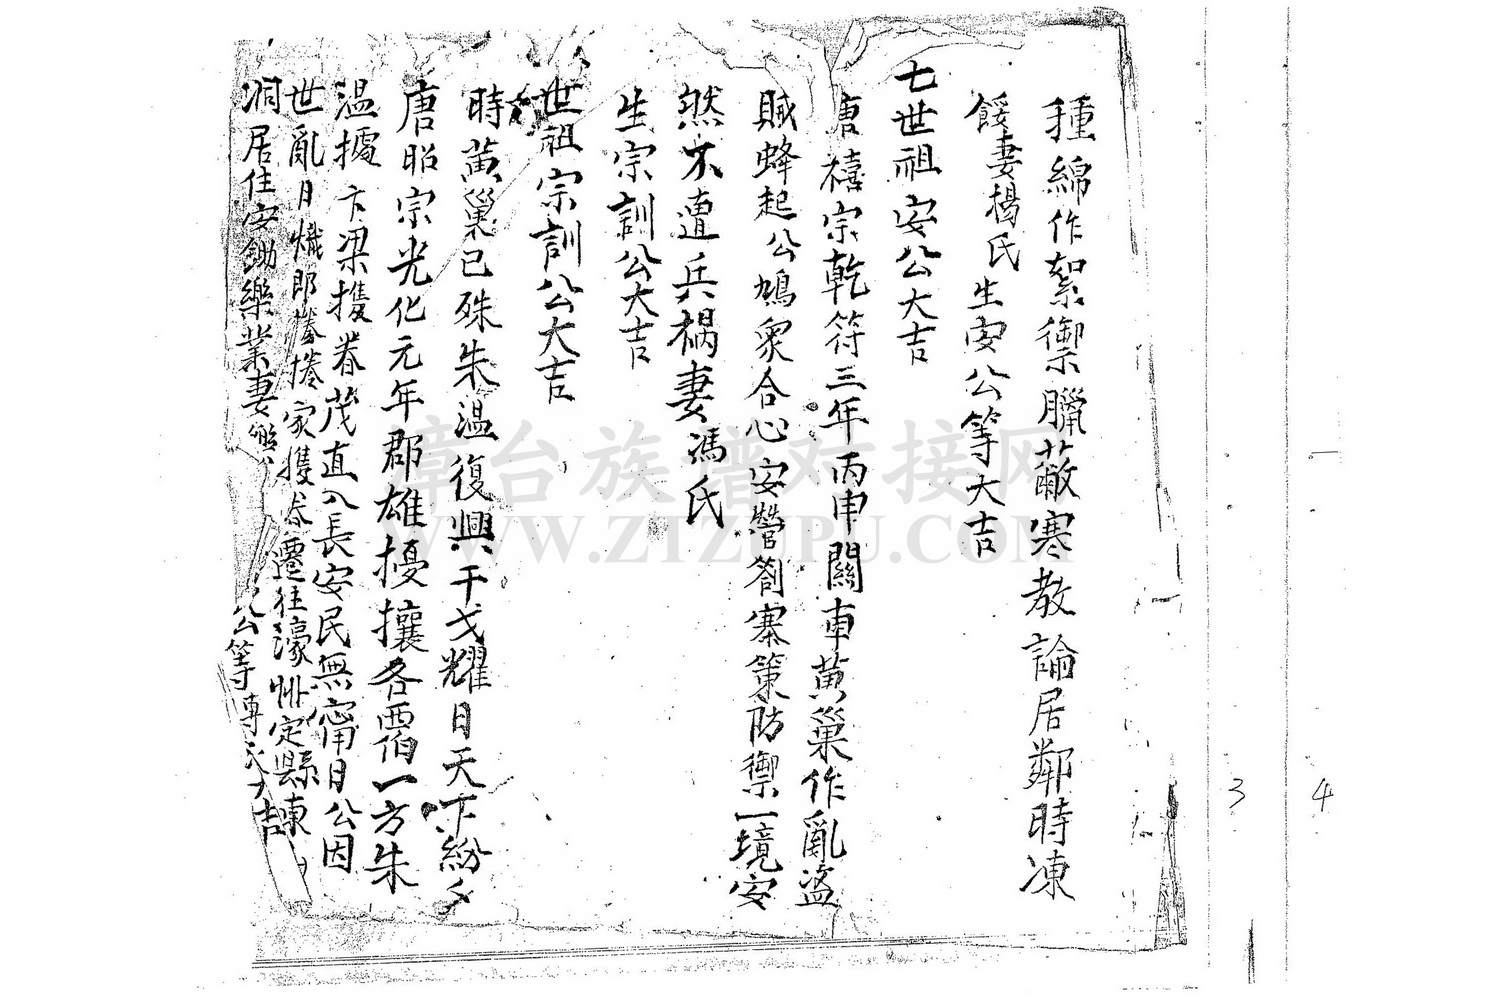 種綿作絮禦臘蔽寒教論居鄰時凍
餒妻楊氏生安公等大吉
七世祖安公大吉
唐禧宗乾符三年丙申關東黄巢作亂盗
賊蜂起公鳩衆合心安營劄寨策防禦一境安
然不遭兵禍妻馮氏
生宗訓公大吉
世祖宗訓公大吉
時黄巢已殊朱温復興干戈耀日天下紛々
唐昭宗光化元年郡雄擾攘各覇一方朱
温據卞梁擭眷茂直入長安民無甯日公因
世亂日熾郎捲家擭眷遷往濠州定縣東
洞居住安鋤樂業妻 公等專氏大吉
漳台族谱对接网
WWW.ZTZUPU.COM
3
4